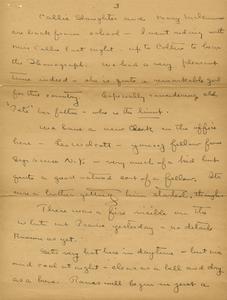 3
Callie Slaughter and Mary McLemore
are back from school - I went riding with
Miss Callie last night - up to Collins to hear
the Phonograph. We had a very pleasant
time indeed - she is quite a remarkable girl
for this country. Especially considering old
her father - who is the limit.
We have a new clerk in the office
here - young fellow from
Syracuse N.Y. - very much of a kid but
quite a good natured sort of a fellow. It's
a bother getting him started, though.
There was a fire visible on the
yesterday - no details
known as yet.
Gets very hot here in daytime - but nice
and cool at night - clear as a bell and dry
as a bone. Rains will begin in just a